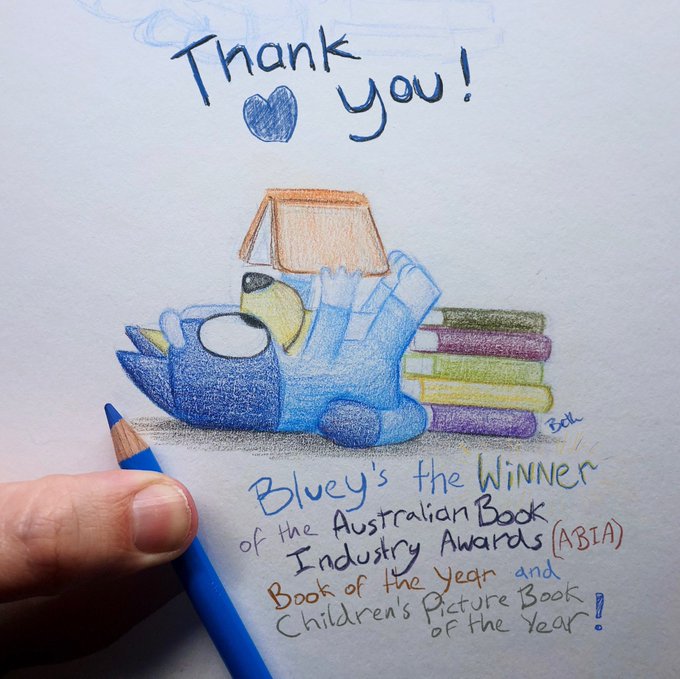 Thank
you!
Beth
Bluey's the WiNNer
of the Australian Book
Industry Awards (ABIA)
Book of the Year and
Children's Picture Book
of the Year!